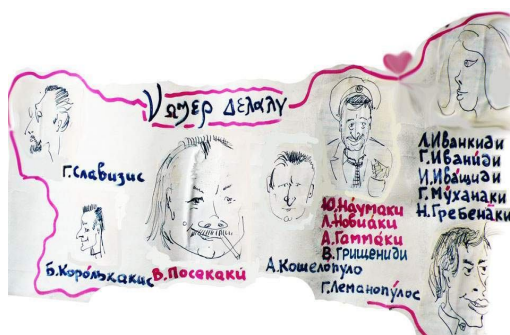 Nομερ δελαλυ
Г.Славизис
Б.Корольхакис
В.Посакаки
А.Кошелопуло
Ю.Наумаки
Л.Новиаки
А.Гаппаки
В.Грищениди
Г.Леманопу́лос
Л.Иванкиди
Г.Ивани́ди
И.Иващиди
Г.Му́ханаки
Н.Гребенаки